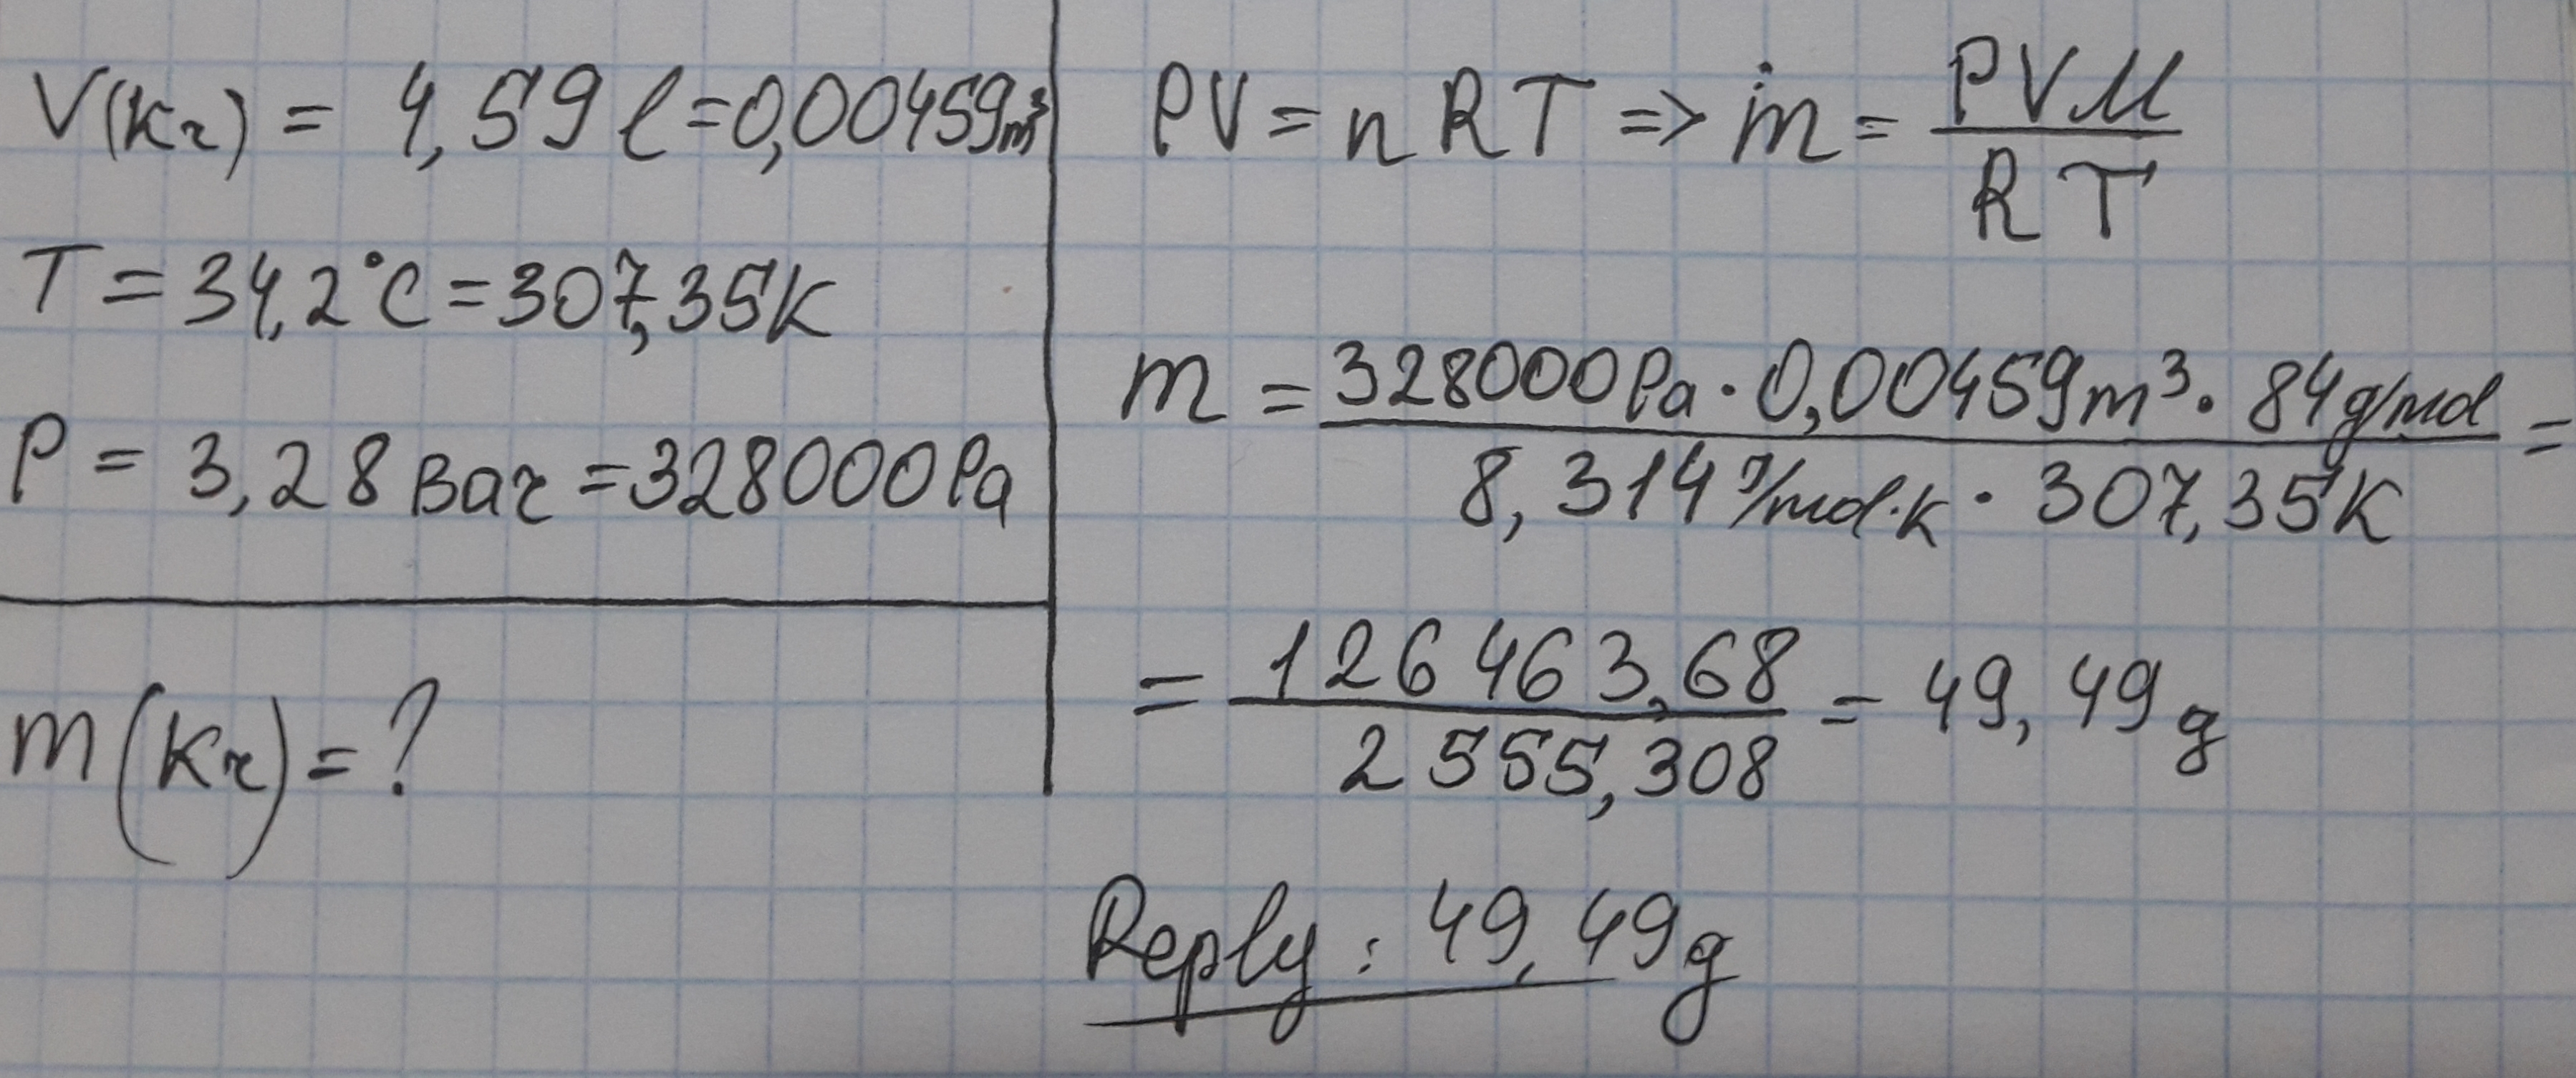 V(Kr) = 4,59 l = 0,00459m³
T = 34,2°C = 307,35K
P = 3,28 Bar = 328000Pa
m(Kr) = ?
PV = nRT => m = PVM / RT
m = 328000Pa · 0,00459m³ · 84g/mol / 8,314 J/mol·K · 307,35K =
= 126463,68 / 2555,308 = 49,49g
Reply: 49,49g